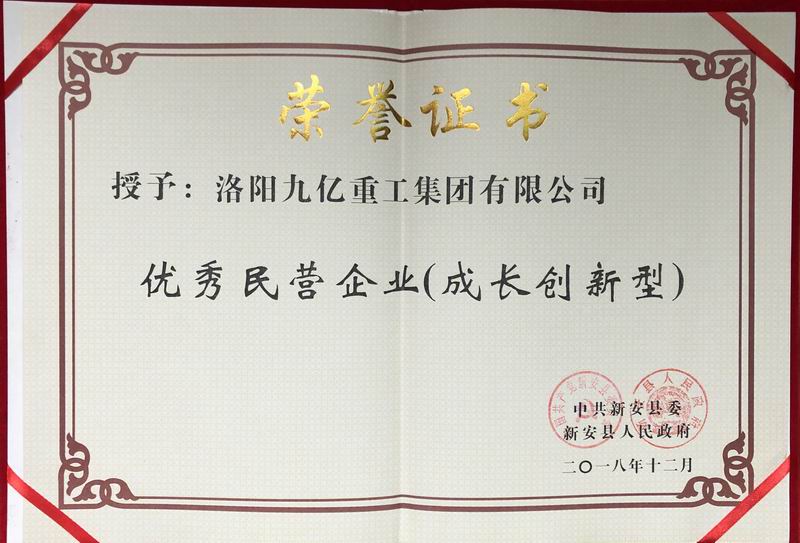 荣誉证书
授予：洛阳九亿重工集团有限公司
优秀民营企业(成长创新型)
中共新安县委
新安县人民政府
二〇一八年十二月